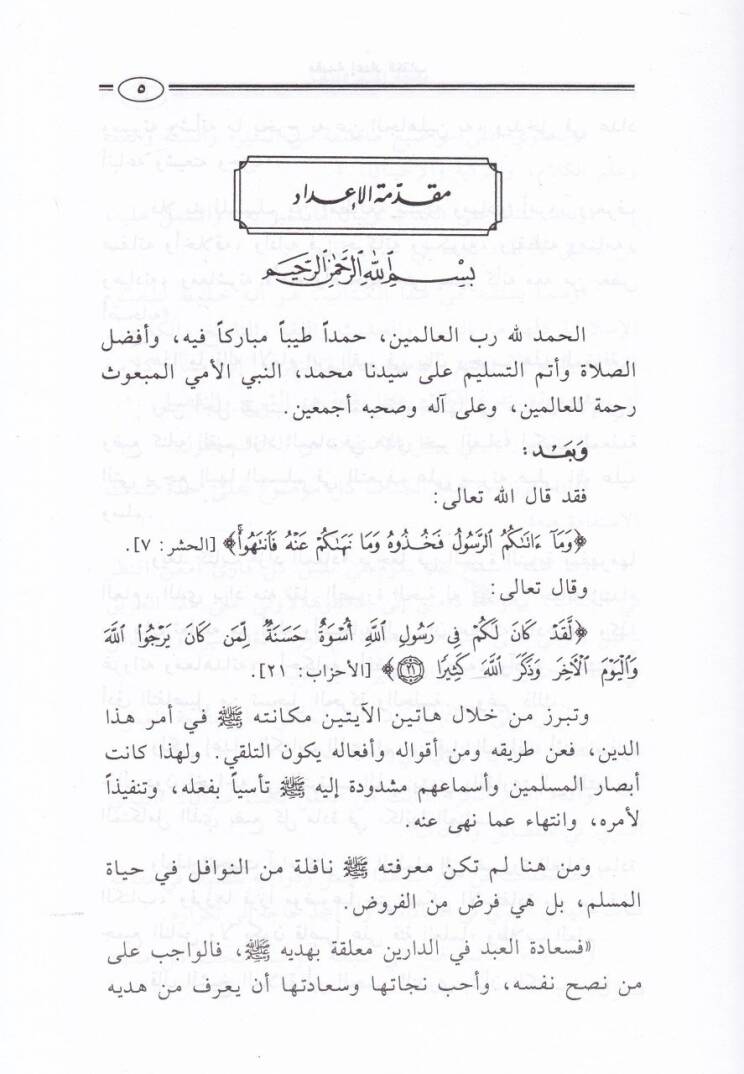 ٥
مقدّمة الإعداد
بِسْمِ اللهِ الرَّحْمٰنِ الرَّحِيْمِ
الحمد لله رب العالمين، حمداً طيباً مباركاً فيه، وأفضل
الصلاة وأتم التسليم على سيدنا محمد، النبي الأمي المبعوث
رحمة للعالمين، وعلى آله وصحبه أجمعين.
وَبَعْد:
فقد قال الله تعالى:
﴿وَمَآ ءَاتَىٰكُمُ ٱلرَّسُولُ فَخُذُوهُ وَمَا نَهَىٰكُمْ عَنْهُ فَٱنتَهُوا۟ۚ﴾ [الحشر: ٧].
وقال تعالى:
﴿لَّقَدْ كَانَ لَكُمْ فِى رَسُولِ ٱللَّهِ أُسْوَةٌ حَسَنَةٌ لِّمَن كَانَ يَرْجُوا۟ ٱللَّهَ
وَٱلْيَوْمَ ٱلْـَٔاخِرَ وَذَكَرَ ٱللَّهَ كَثِيرًا ۝٢١﴾ [الأحزاب: ٢١].
وتبرز من خلال هاتين الآيتين مكانته ﷺ في أمر هذا
الدين، فعن طريقه ومن أقواله وأفعاله يكون التلقي. ولهذا كانت
أبصار المسلمين وأسماعهم مشدودة إليه ﷺ تأسياً بفعله، وتنفيذاً
لأمره، وانتهاء عما نهى عنه.
ومن هنا لم تكن معرفته ﷺ نافلة من النوافل في حياة
المسلم، بل هي فرض من الفروض.
«فسعادة العبد في الدارين معلقة بهديه ﷺ، فالواجب على
من نصح نفسه، وأحب نجاتها وسعادتها أن يعرف من هديه